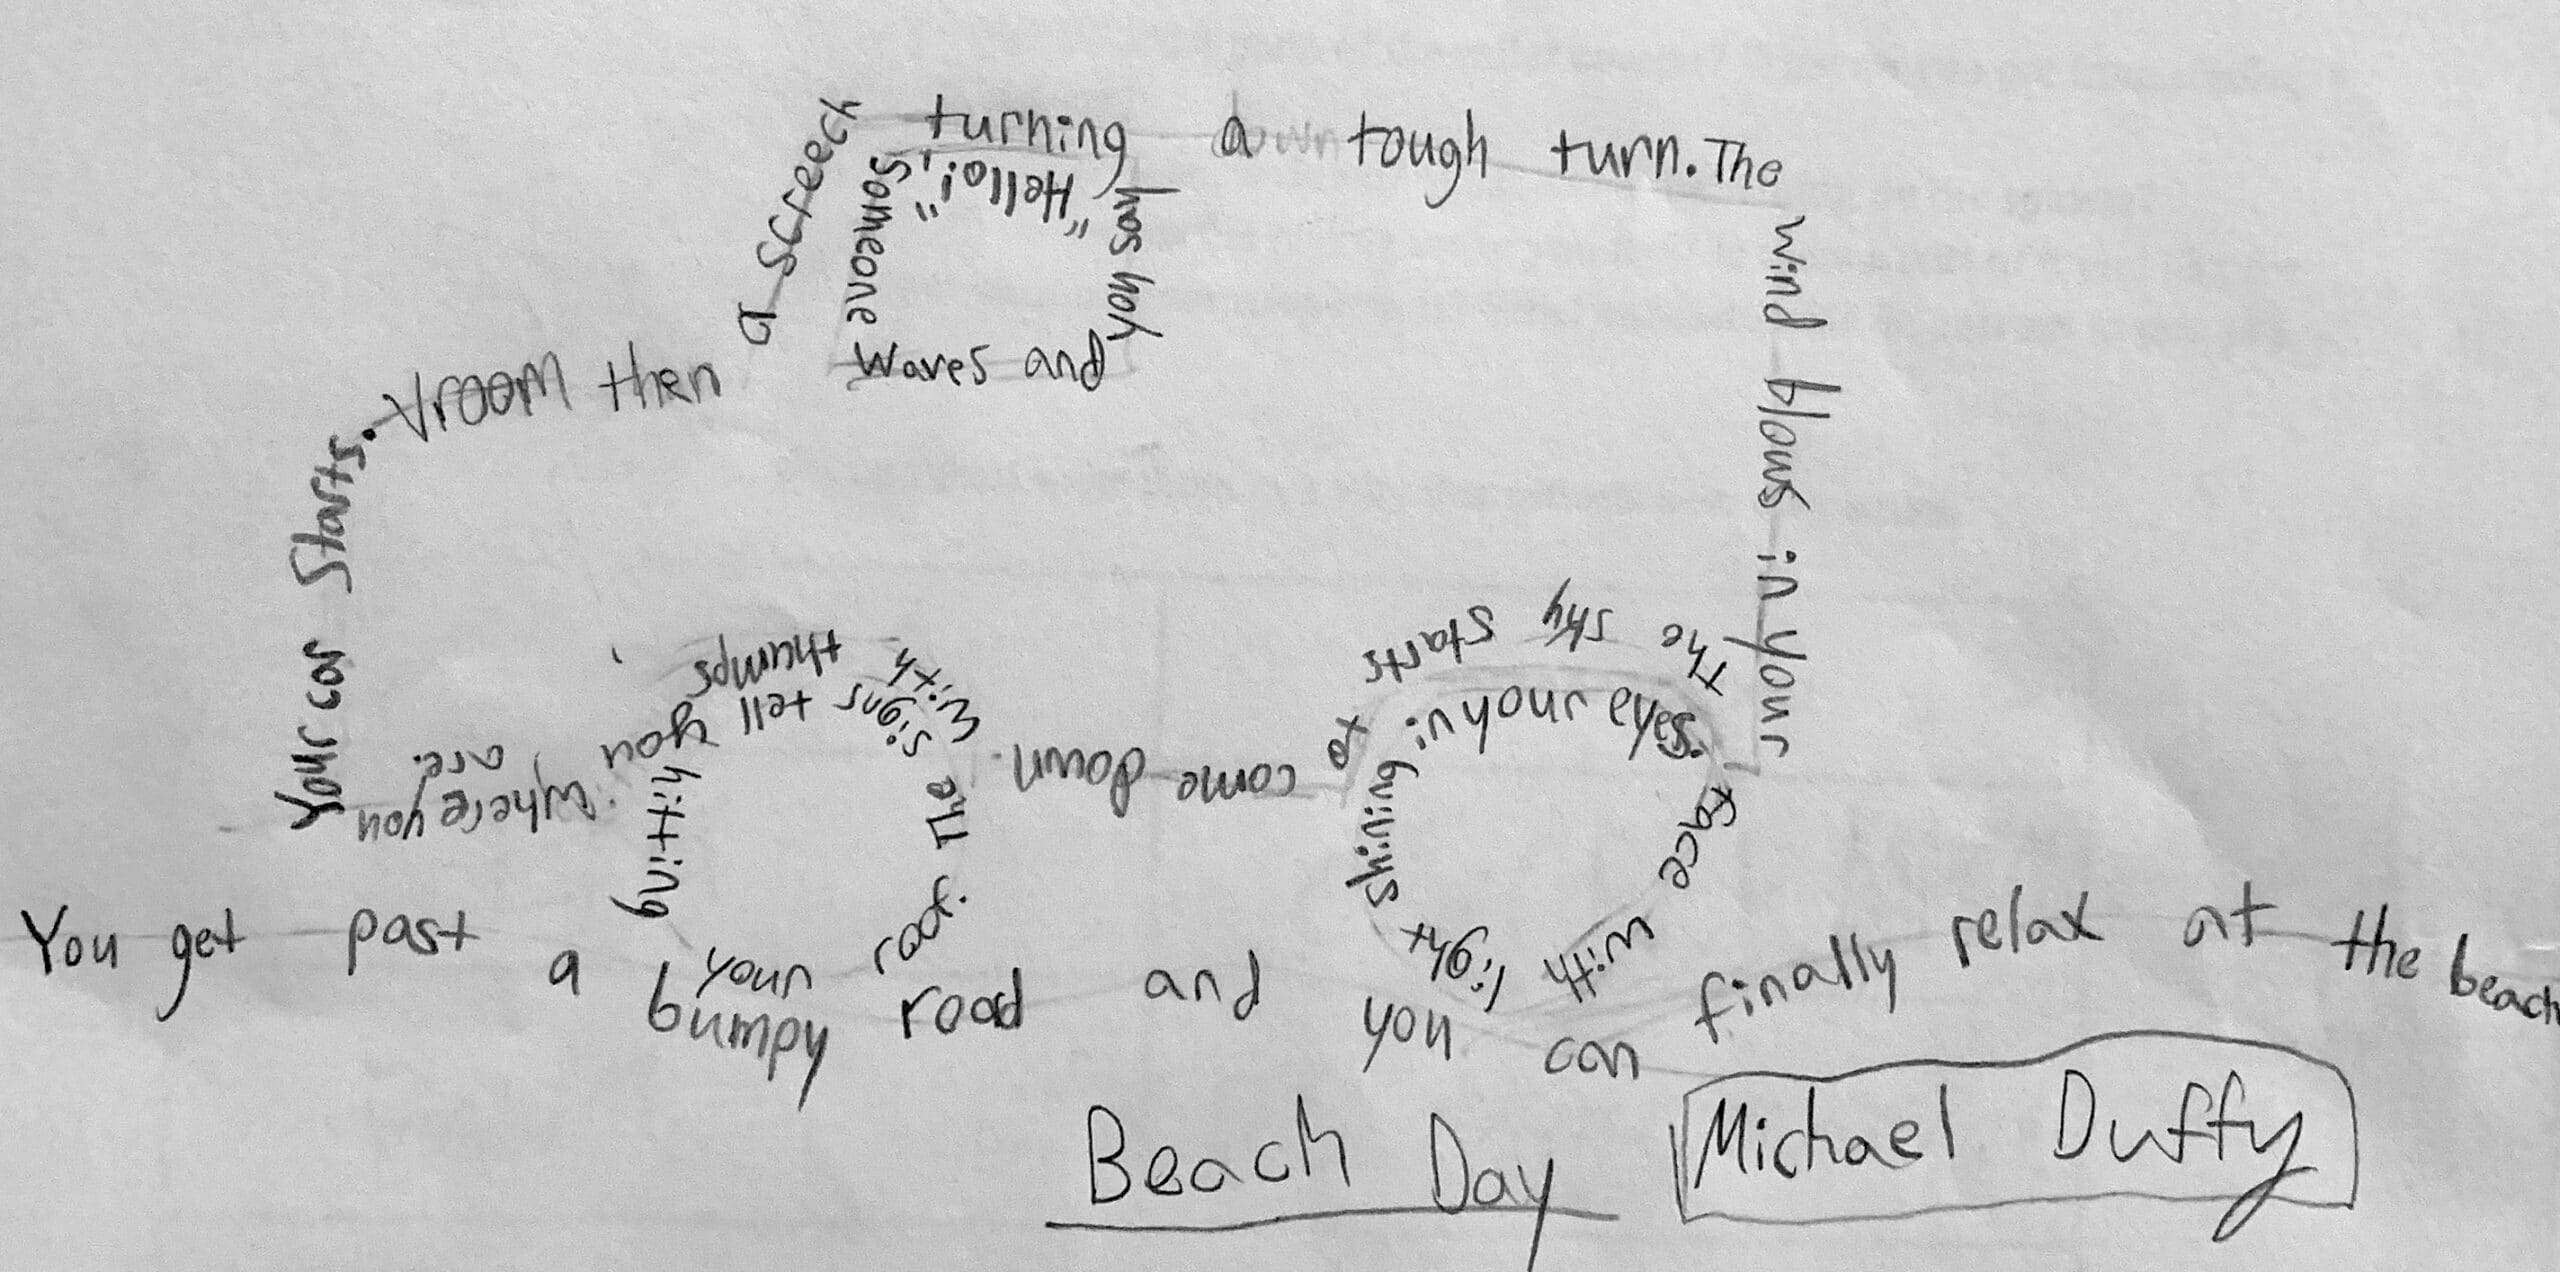 Your car Starts.
Vroom then
a screech
turning a tough turn. The
wind blows in your
face with light
shining in your eyes.
The sky starts to
come down.
With thumps
hitting your roof.
The signs tell you
where you are.
Someone
waves and
you say
"Hello!"
You get past a bumpy road and you can finally relax at the beach
Beach Day
Michael Duffy